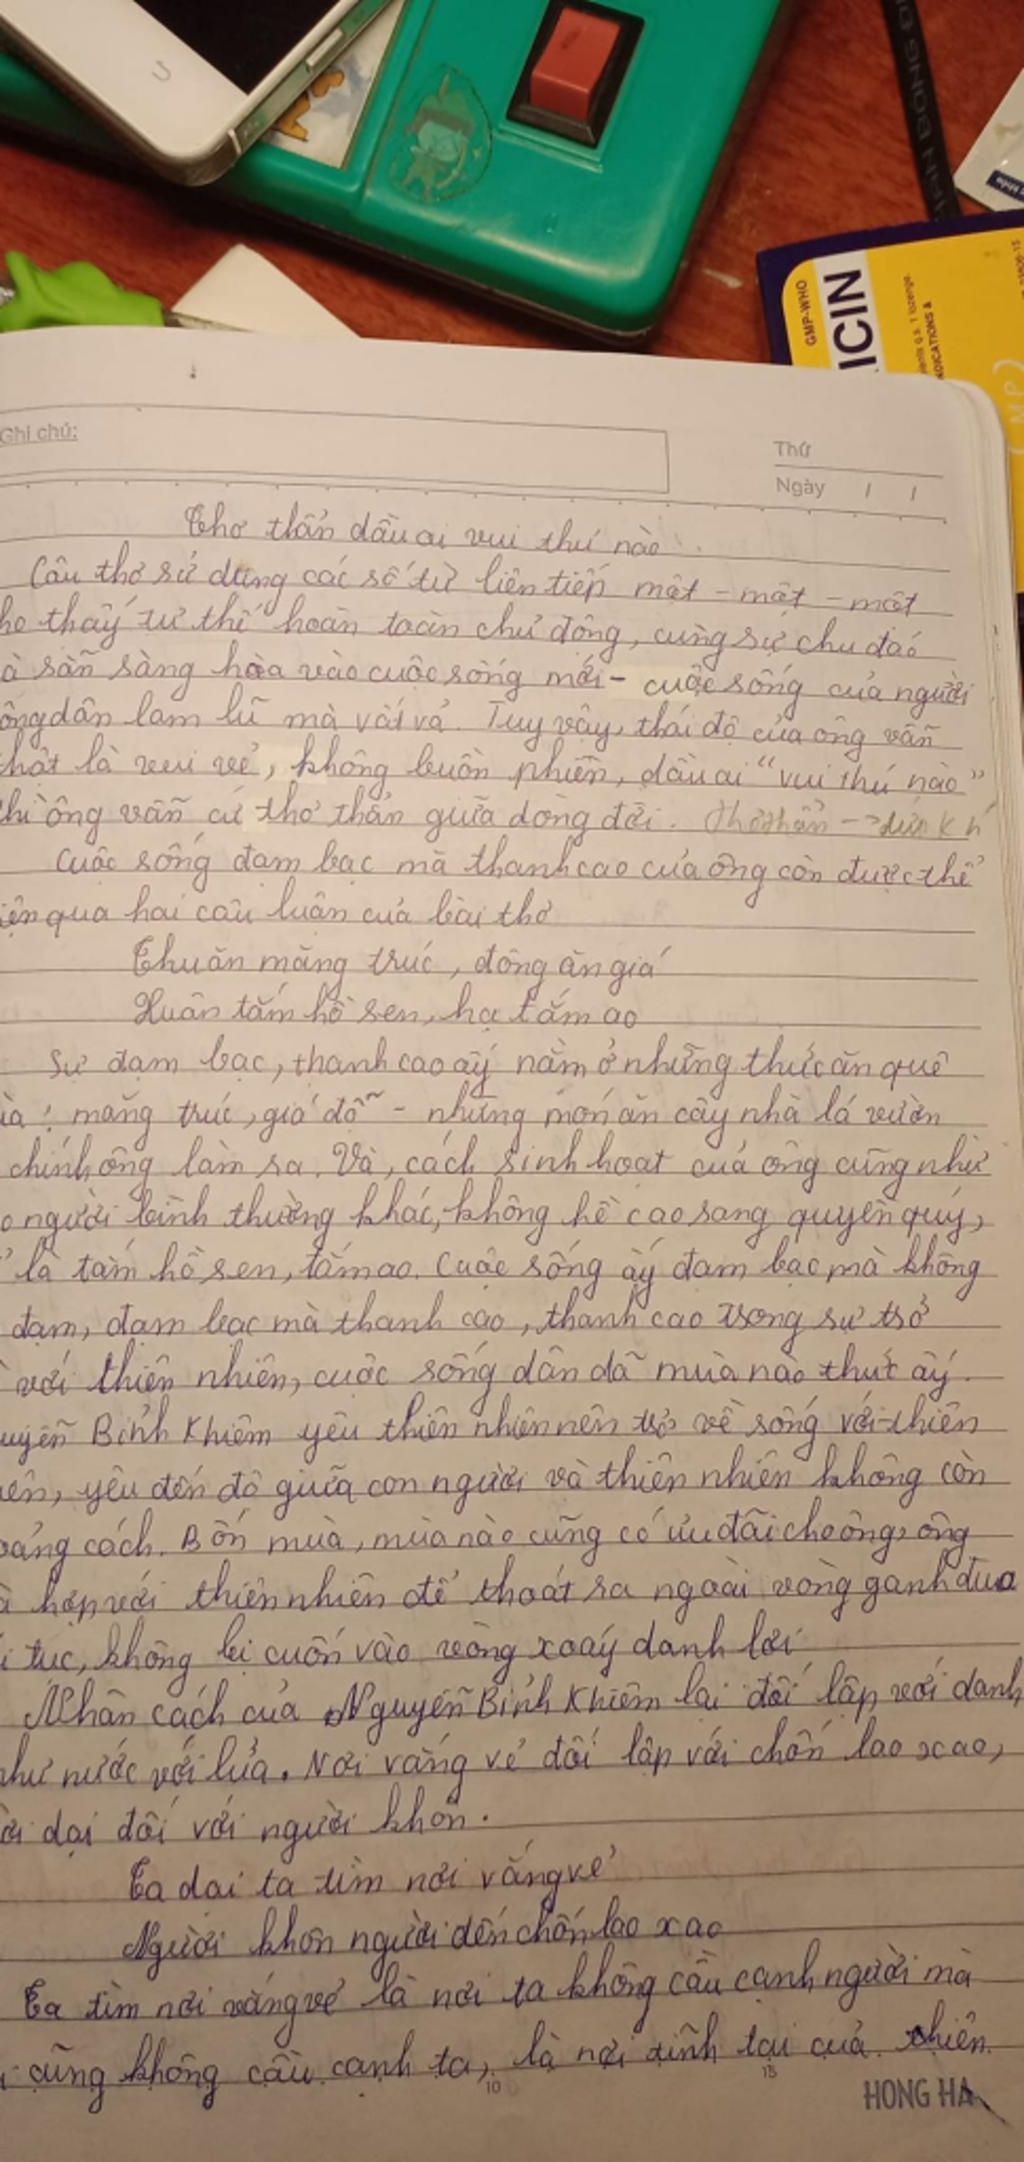 HAN BONG SUN
GMP-WHO
ICIN
Ghi chú:
Thứ
Ngày / /
Thơ thẩn dầu ai vui thú nào
Câu thơ sử dụng các số từ liên tiếp một - một - một
ho thấy tư thế hoàn toàn chủ động, cùng sự chu đáo
à sẵn sàng hòa vào cuộc sống mới - cuộc sống của người
ông dân lam lũ mà vất vả. Tuy vậy, thái độ của ông vẫn
hật là vui vẻ, không buồn phiền, dầu ai "vui thú nào"
hì ông vẫn cứ thơ thẩn giữa dòng đời. thơ thẩn ->
Cuộc sống đạm bạc mà thanh cao của ông còn được thể
iện qua hai câu luận của bài thơ
Thu ăn măng trúc, đông ăn giá
Xuân tắm hồ sen, hạ tắm ao
Sự đạm bạc, thanh cao ấy nằm ở những thức ăn quê
ùa: măng trúc, giá đỗ - những món ăn cây nhà lá vườn
chính ông làm ra. Và, cách sinh hoạt của ông cũng như
o người bình thường khác, không hề cao sang quyền quý,
là tắm hồ sen, tắm ao. Cuộc sống ấy đạm bạc mà không
đạm, đạm bạc mà thanh cao, thanh cao trong sự trở
với thiên nhiên, cuộc sống dân dã mùa nào thức ấy.
uyễn Bỉnh Khiêm yêu thiên nhiên nên trở về sống với thiên
iên, yêu đến độ giữa con người và thiên nhiên không còn
oảng cách. Bốn mùa, mùa nào cũng có ưu đãi cho ông, ông
à hợp với thiên nhiên để thoát ra ngoài vòng ganh đua
i tục, không bị cuốn vào vòng xoáy danh lợi
Nhân cách của Nguyễn Bỉnh Khiêm lại đối lập với danh
như nước với lửa. Nơi vắng vẻ đối lập với chốn lao xao,
ời dại đối với người khôn.
Ta dại ta tìm nơi vắng vẻ
Người khôn người đến chốn lao xao
Ta tìm nơi vắng vẻ là nơi ta không cầu cạnh người mà
i cũng không cầu cạnh ta, là nơi tĩnh tại của thiên
10 15
HONG HA